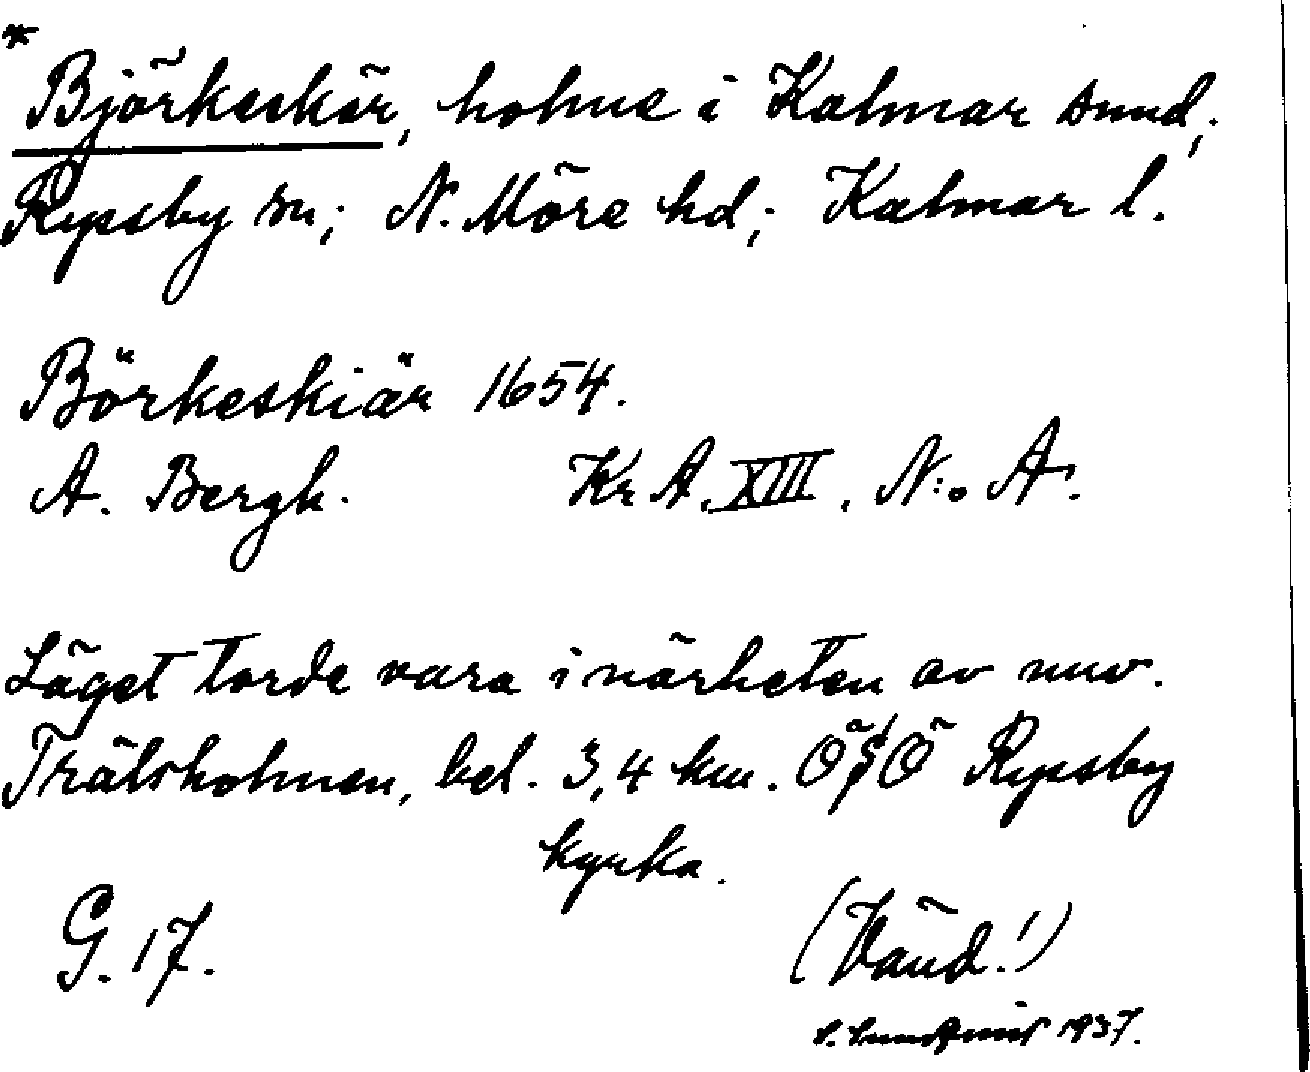 * Björkeskär, holme i Kalmar sund;
Ryssby sn; N. Möre hd; Kalmar l.
Börkeskiär 1654.
A. Bergh. Kr A. XIII, N:o A.
Läget torde vara i närheten av nuv.
Trälsholmen, bel. 3,4 km. ÖSÖ Ryssby
kyrka.
G. 17. (Vänd!)
1937.